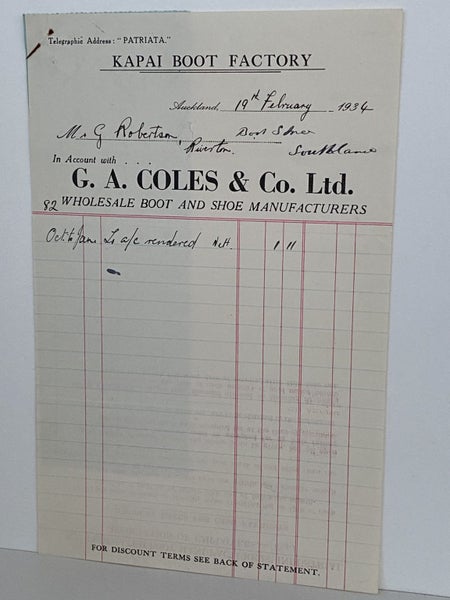 Telegraphic Address: "PATRIATA."
KAPAI BOOT FACTORY
Auckland, 19th February 1934
Mr G Robertson, Boot Store
Riverton. Southland
In Account with . . .
G. A. COLES & Co. Ltd.
82 WHOLESALE BOOT AND SHOE MANUFACTURERS
Oct. to Jany To a/c rendered Nett. 1 11
FOR DISCOUNT TERMS SEE BACK OF STATEMENT.